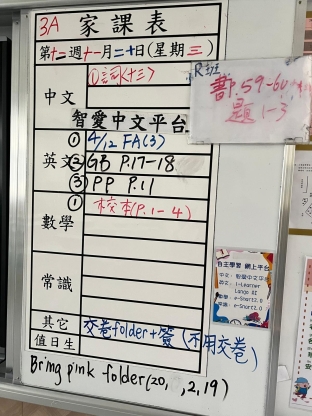 3A 家課表
第十二週十一月二十日(星期三)
中文
①詞(十三)
R班
書P.59-60
題1-3
智愛中文平台
英文
① 4/12 FA(3)
② GB P.17-18
③ PP P.11
數學
① 校本(P.1-4)
常識
其它
交卷folder+簽(不用交卷)
值日生
Bring pink folder(20, ,2,19)
自主學習 網上平台
中文: 智愛中文平台
英文: i-Learner